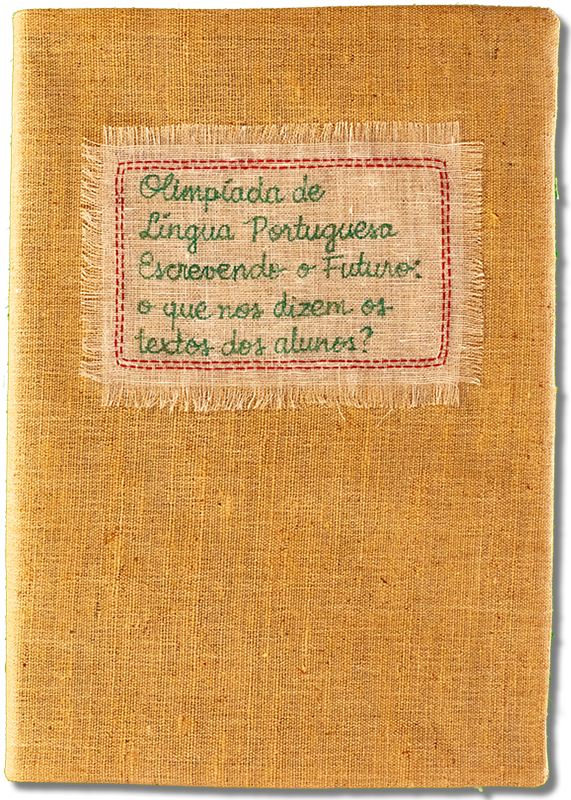 Olimpíada de
Língua Portuguesa
Escrevendo o Futuro:
o que nos dizem os
textos dos alunos?